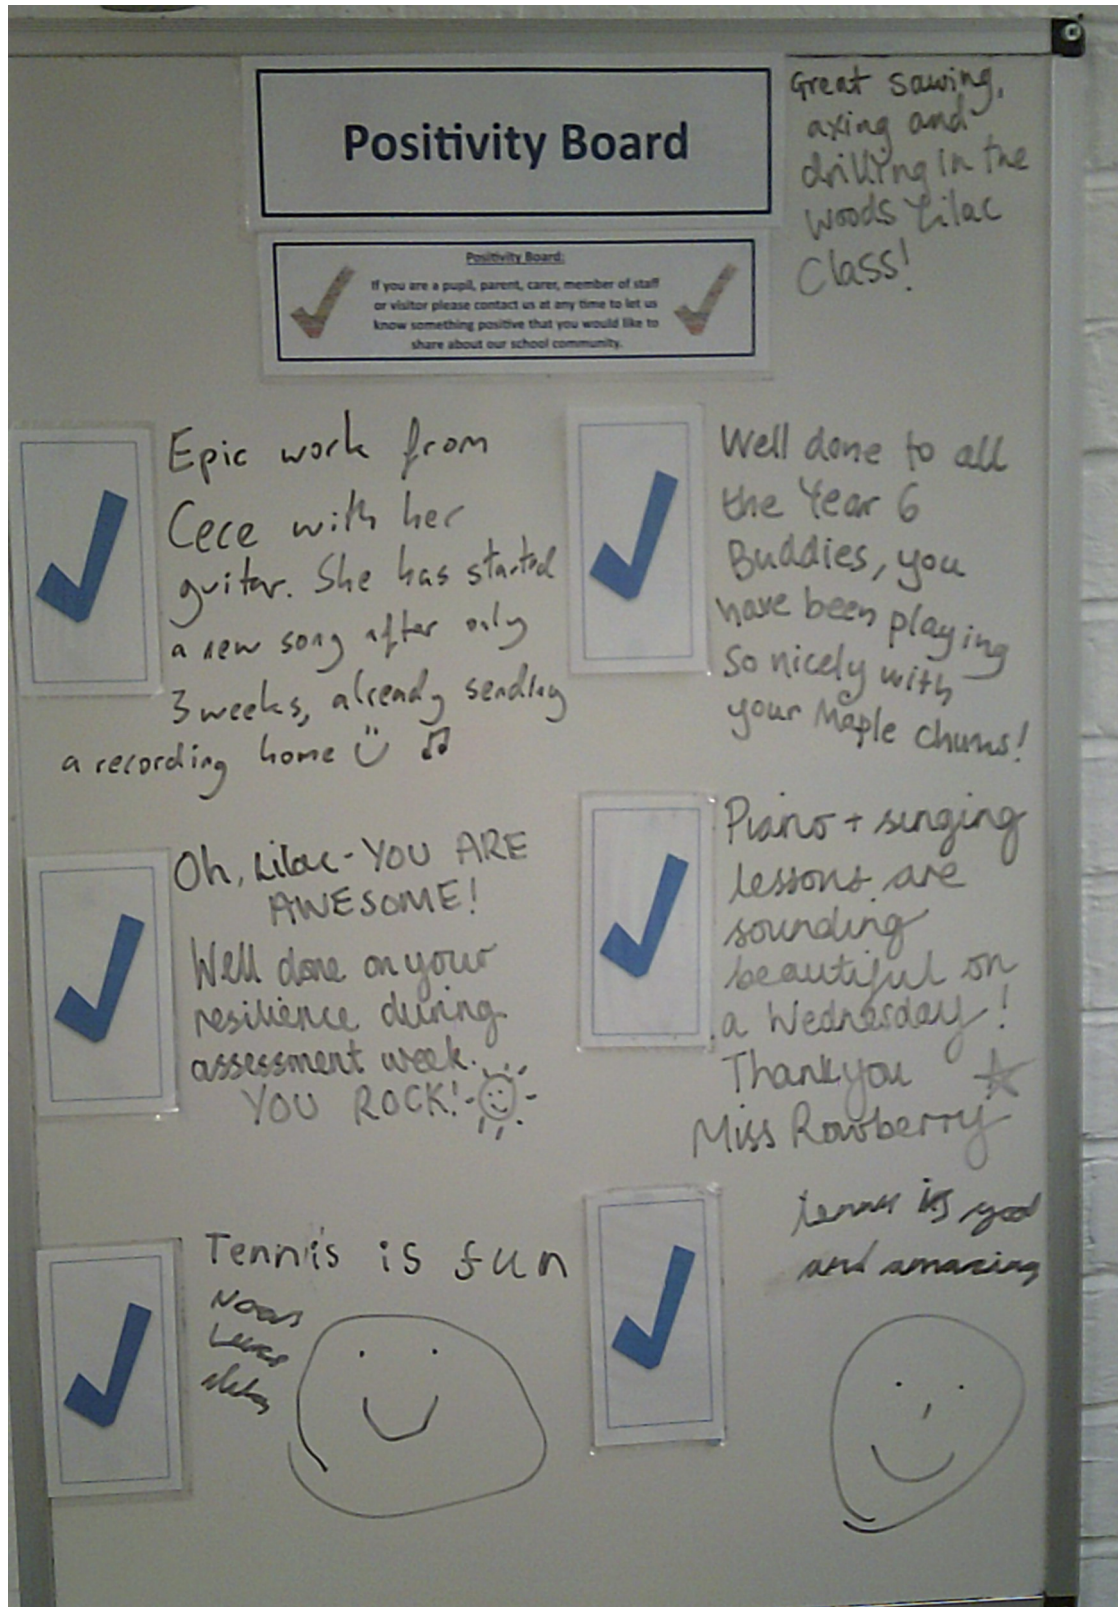 Positivity Board
Great sawing,
axing and
drilling in the
woods Lilac
Class!
Positivity Board:
If you are a pupil, parent, carer, member of staff
or visitor please contact us at any time to let us
know something positive that you would like to
share about our school community.
Epic work from
Cece with her
guitar. She has started
a new song after only
3 weeks, already sending
a recording home
Well done to all
the Year 6
Buddies, you
have been playing
so nicely with
your Maple chums!
Oh, Lilac - YOU ARE
AWESOME!
Well done on your
resilience during
assessment week.
YOU ROCK!
Piano + singing
lessons are
sounding
beautiful on
a Wednesday!
Thankyou
Miss Rowberry
Tennis is fun
tennis is good
and amazing